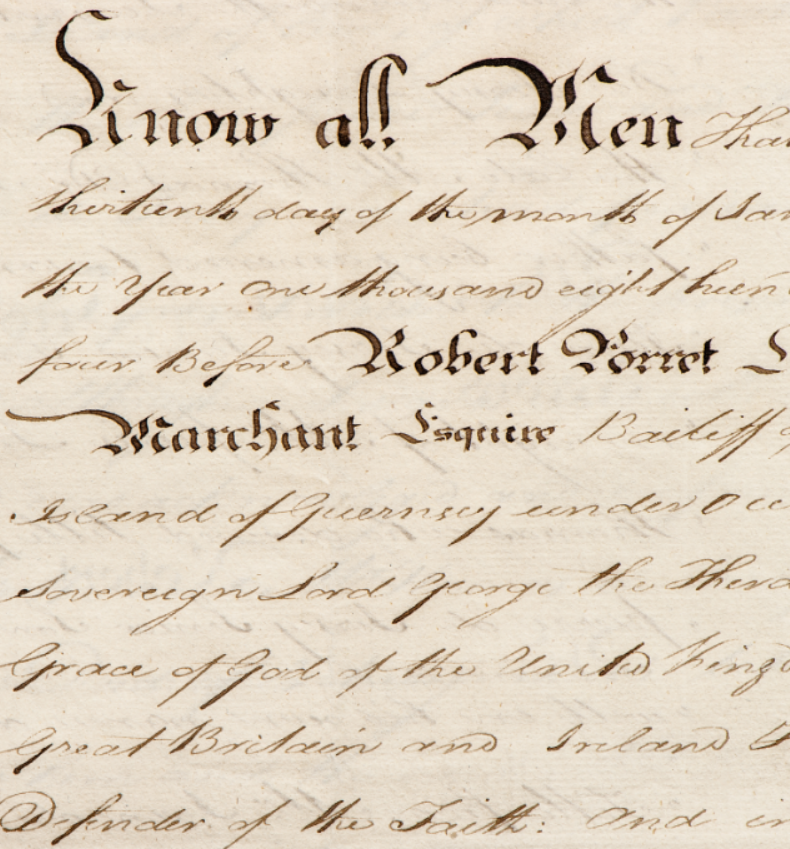 Know all Men That
thirteenth day of the month of Jan
the Year one thousand eight hun
four Before Robert Porret
Marchant Esquire Bailiff
Island of Guernsey under Ou
Sovereign Lord George the Third
Grace of God of the United Kingd
Great Britain and Ireland
Defender of the Faith: And in